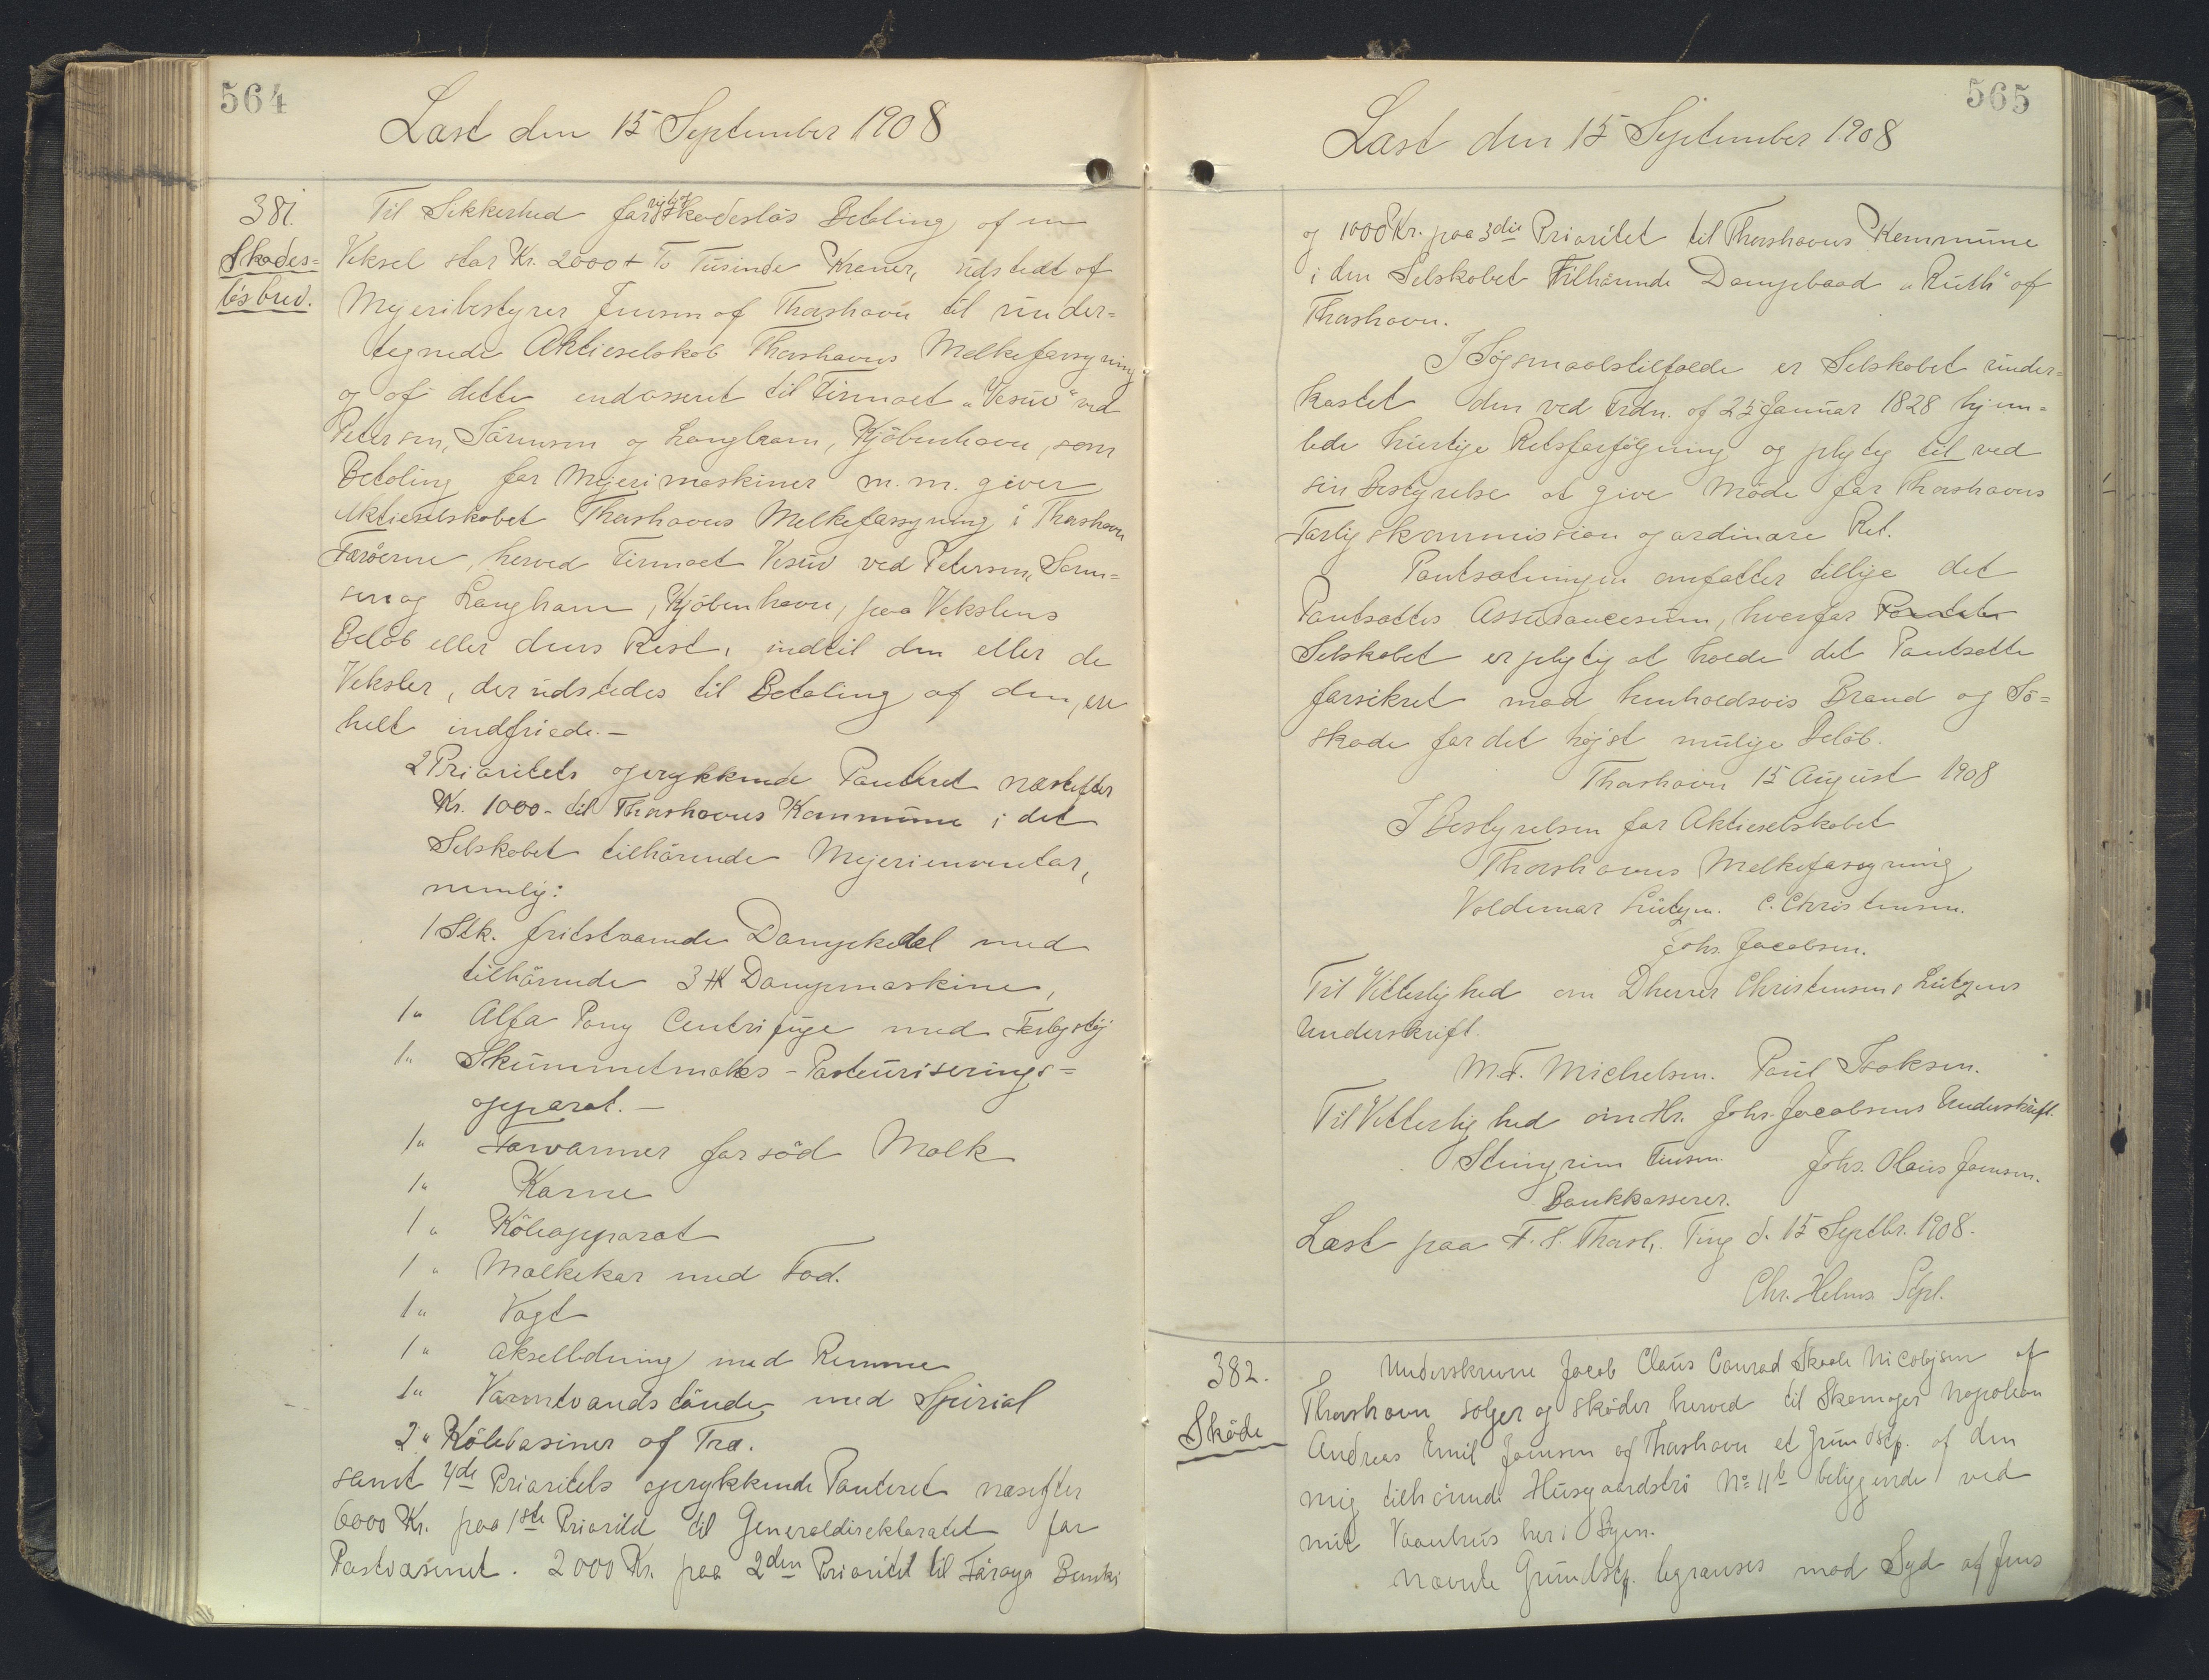 564
Læst den 15 September 1908
381.
Skades=
løsbrev.
Til Sikkerhed for rigtig skadesløs Betaling af en
Veksel stor Kr. 2000 + To Tusinde Kroner, udstedt af
Mejeribestyrer Jensen af Thorshavn til under=
tegnede Aktieselskab Thorshavns Mælkeforsyning
og af dette endosseret til Firmaet „Vesuv“ ved
Petersen, Sörensen og Langham, Kjöbenhavn, som
Betaling for Mejerimaskiner m.m. giver
Aktieselskabet Thorshavns Melkeforsyning i Thorshavn
Færöerne, herved Firmaet Vesuv ved Petersen, Sørn=
sen og Langham, Kjöbenhavn, paa Vekslens
Belöb eller dens Rest, indtil den eller de
Veksler, der udstedes til Betaling af den, ere
helt indfriede. -
2 Prioritets oprykkende Panteret næstefter
Kr. 1000 - til Thorshavns Kommune i det
Selskabet tilhörende Mejeriinventar,
nemlig:
1 Stk. fritstaaende Dampkedel med
tilhörende 3 HK Dampmaskine,
1 " Alfa Pony Centrifuge med Forlagstöj
1 " Skummetmælks-Pasteuriserings=
apparat. -
1 " Forvarmer for söd Mælk
1 " Kærne
1 " Köleapparat
1 " Mælkekar med Fod.
1 " Vægt
1 " Akselledning med Remme
1 " Varmtvandstönde med Spirial
2 " Kölebasiner af Træ.
samt 4de Prioritets oprykkende Panteret næstefter
6000 Kr. paa 1ste Prioritet til Generaldirektoratet for
Postvæsenet. 2000 Kr. paa 2den Prioritet til Föroya Banki
565
Læst den 15 September 1908
og 1000 Kr. paa 3die Prioritet til Thorshavns Kommune
i den Selskabet tilhörende Dampbaad „Ruth“ af
Thorshavn.
I Søgsmaalstilfælde er Selskabet under=
kastet den ved Frdn. af 25 Januar 1828 hjem=
lede hurtige Retsforfölgning og pligtig til ved
sin Bestyrelse at give Möde for Thorshavns
Forligskommission og ordinære Ret.
Pantsætningen omfatter tillige det
Pantsattes Assurancesum, hvorfor
Selskabet er pligtig at holde det Pantsatte
forsikret mod henholdsvis Brand og Sö=
skade for det højst mulige Belöb.
Thorshavn 15 August 1908
I Bestyrelsen for Aktieselskabet
Thorshavns Mælkeforsyning
Valdemar Lützen. C. Christensen.
Johs. Jacobsen.
Til Vitterlighed om D'herrer Christensens, Lützens
Underskrift.
M.F. Michelsen. Poul Isaksen.
Til Vitterlighed om Hr. Johs. Jacobsens Underskrift.
Steingrim Jensen. Johs. Olaus Joensen.
Bankkasserer.
Læst paa F. S. Thorsh. Ting d. 15 Septbr. 1908.
Chr. Helms Scpl.
382.
Sköde
Underskrevne Jacob Claus Conrad Skaale Nicolajsen af
Thorshavn sælger og sköder herved til Skomager Napoleon
Andreas Emil Joensen af Thorshavn et Grundstp. af den
mig tilhörende Husgaardströ No 11b beliggende ved
mit Vaanhus her i Byen.
Nævnte Grundstp. begrænses mod Syd af Jens